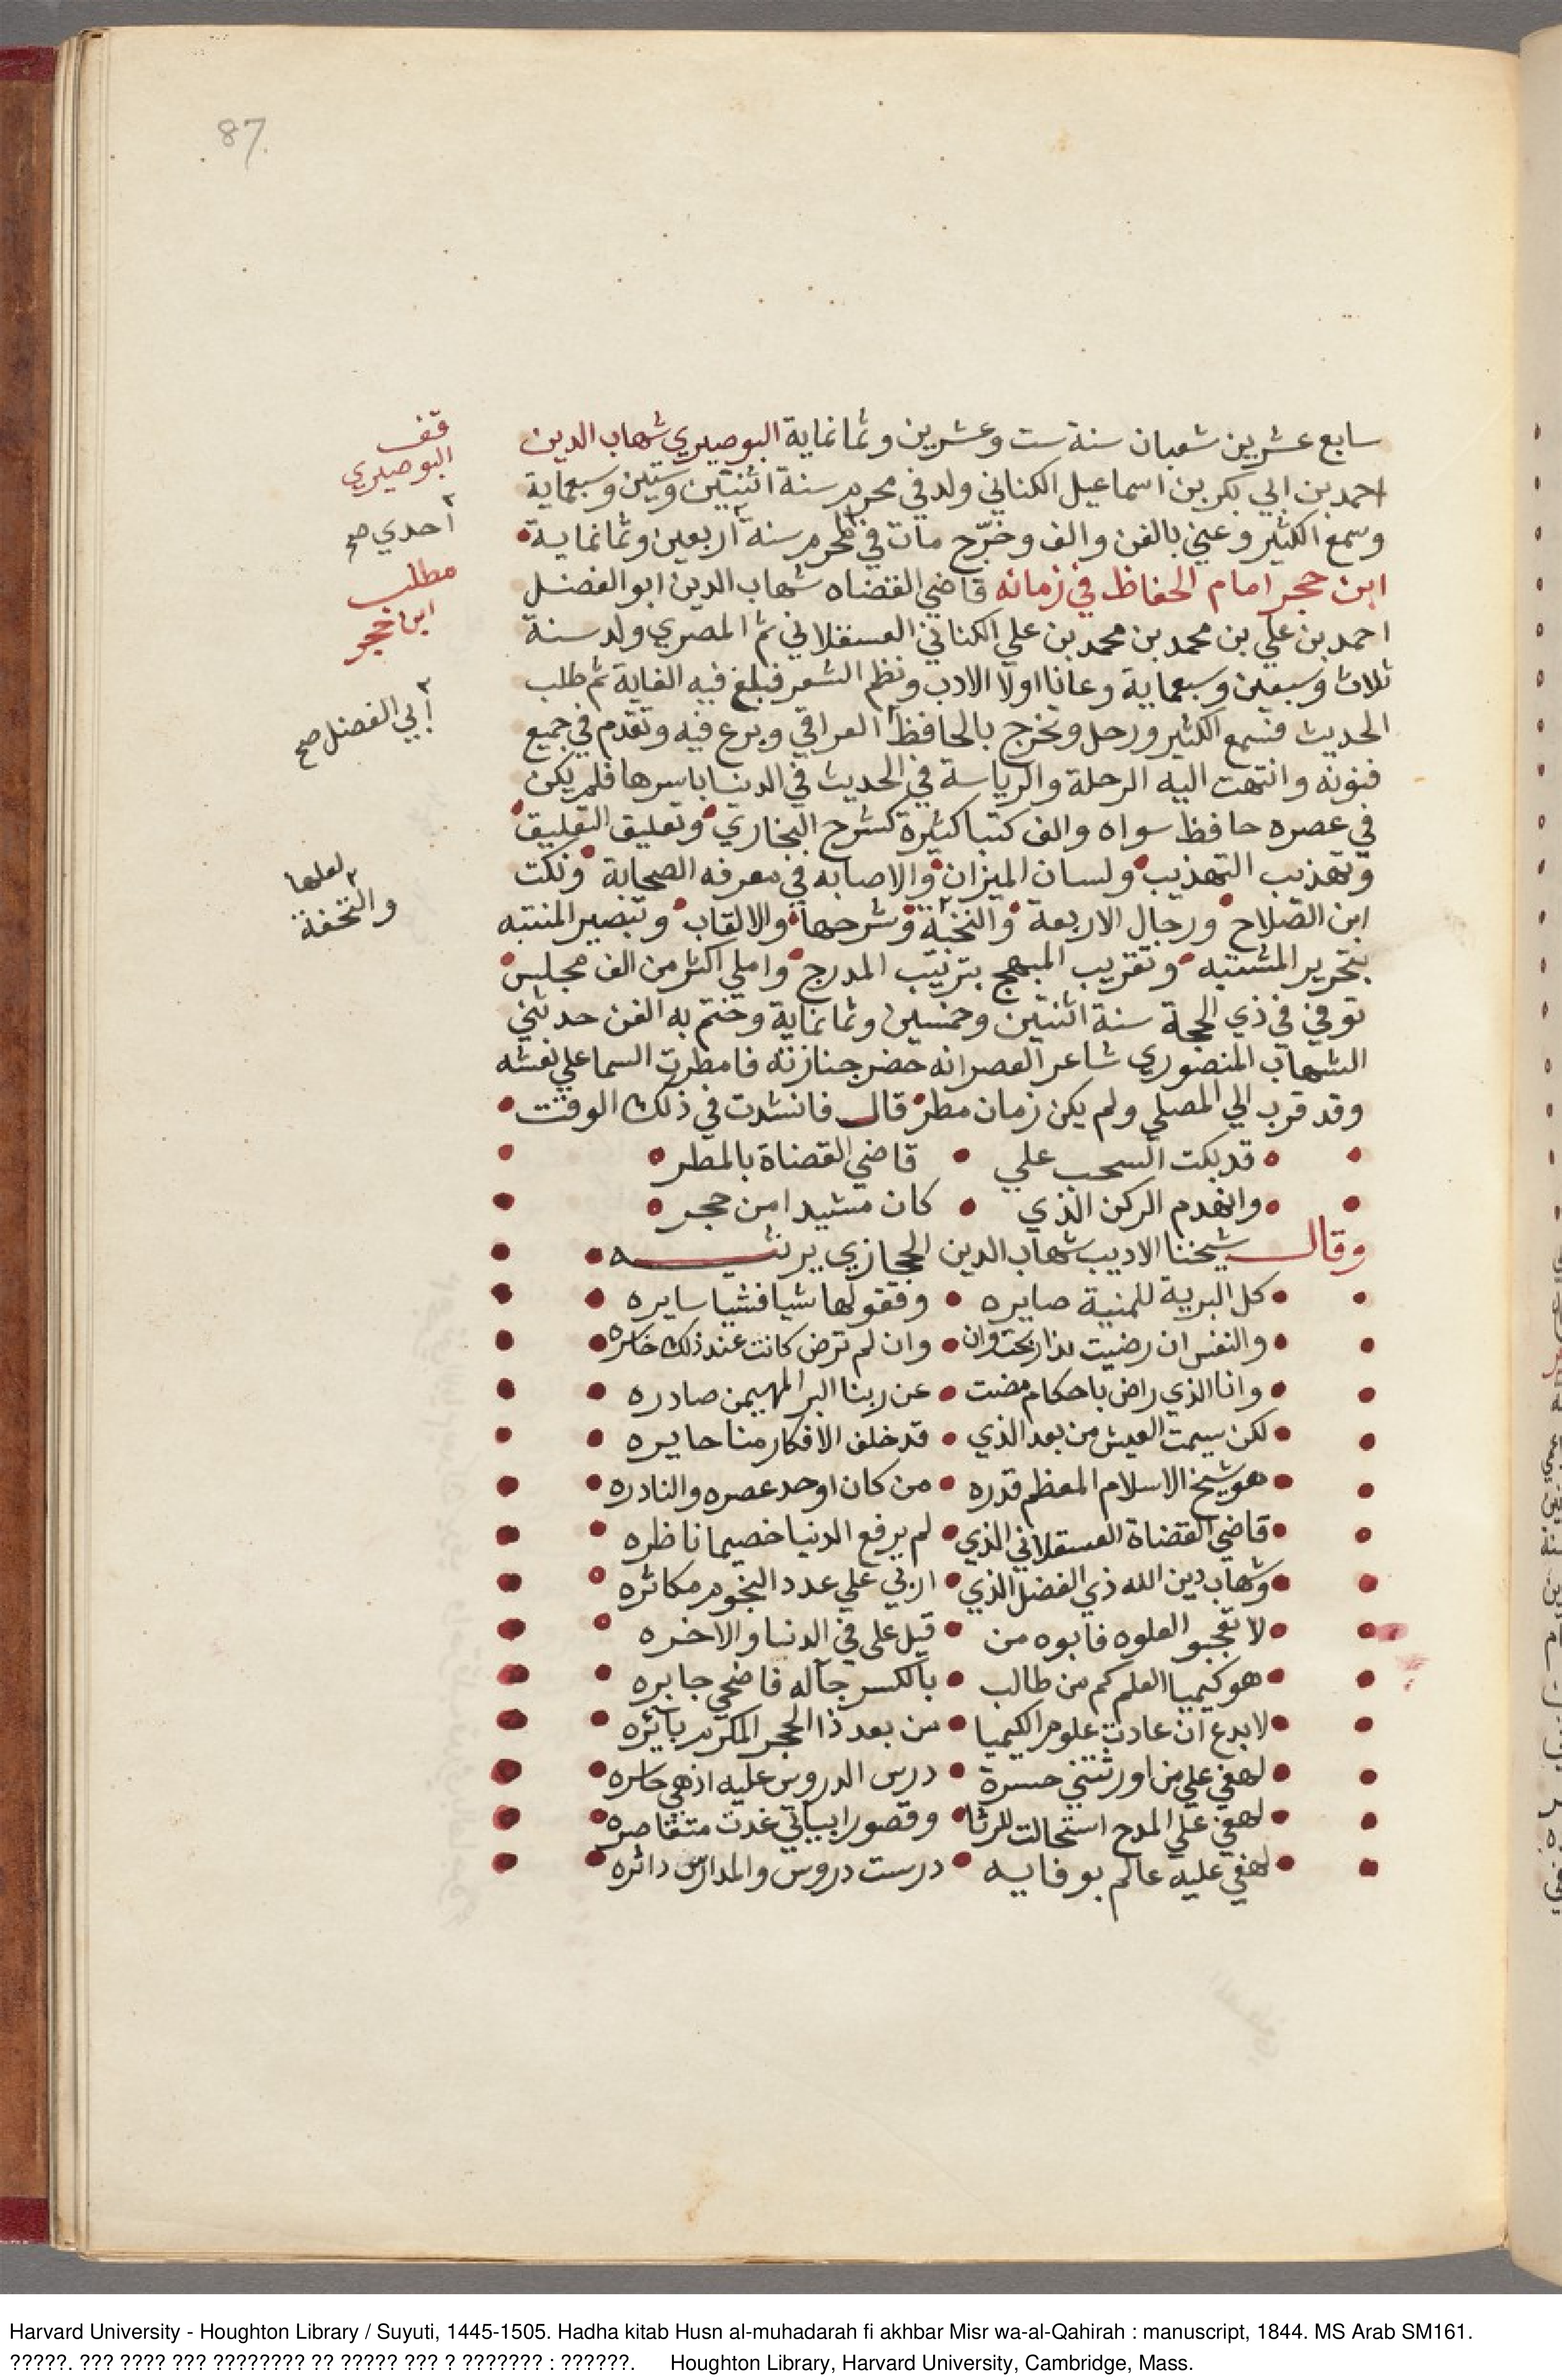 87
سابع عشرين شعبان سنة ست وعشرين وثمانماية البوصيري شهاب الدين
احمد بن ابي بكر بن اسماعيل الكناني ولد في محرم سنة اثنتين وستين وسبعماية
وسمع الكثير وعني بالفن والف وخرّج مات في المحرم سنة اربعين وثمانماية
ابن حجر امام الحفاظ في زمانه قاضي القضاه شهاب الدين ابو الفضل
احمد بن علي بن محمد بن محمد بن علي الكناني العسقلاني ثم المصري ولد سنة
ثلاث وسبعين وسبعماية وعانا اولا الادب ونظم الشعر فبلغ فيه الغاية ثم طلب
الحديث فسمع الكثير ورحل وتخرج بالحافظ العراقي وبرع فيه وتقدم في جميع
فنونه وانتهت اليه الرحلة والرياسة في الحديث في الدنيا باسرها فلم يكن
في عصره حافظ سواه والف كتبا كثيرة كشرح البخاري وتعليق التعليق
وتهذيب التهذيب ولسان الميزان والاصابه في معرفه الصحابة ونكت
ابن الصلاح ورجال الاربعة والنخبة وشرحها والالقاب وتبصير المنتبه
بتحرير المشتبه وتقريب المبهج بترتيب المدرج واملي اكثر من الف مجلس
توفي في ذي الحجة سنة اثنتين وخمسين وثمانماية وختم به الفن حدثني
الشهاب المنصوري شاعر العصر انه حضر جنازته فامطرت السما علي نعشه
وقد قرب الي المصلي ولم يكن زمان مطر قال فانشدت في ذلك الوقت
قد بكت السحب علي قاضي القضاة بالمطر
وانهدم الركن الذي كان مشيدا من حجر
وقال شيخنا الاديب شهاب الدين الحجازي يرثيه
كل البرية للمنية صايره وقفولها شيا فشيا سايره
والنفس ان رضيت بذا ربحت وان وان لم ترض كانت عند ذلك خاسره
وانا الذي راض باحكام مضت عن ربنا البر المهيمن صادره
لكن سيمت العيش من بعد الذي قد خلف الافكار منا حايره
هو شيخ الاسلام المعظم قدره من كان اوحد عصره والنادره
قاضي القضاة العسقلاني الذي لم يرفع الدنيا خصيما ناظره
وشهاب دين الله ذي الفضل الذي اربي علي عدد النجوم مكاثره
لا تعجبو العلوه فابوه من قيل علي في الدنيا والاخره
هو كيميا العلم كم من طالب بالكسر جآله فاضحي جابره
لا بدع ان عادت علوم الكيميا من بعد ذا الحجر المكرم بآئره
لهفي علي من اورثتني حسرة درس الدروس عليه اذ هي حاسره
لهفي علي المدح استحالت للرثا وقصور ابياتي غدت متقاصره
لهفي عليه عالم بوفايه درست دروس والمدارس داثره
قف
البوصيري
احدي صح
مطلب
ابن حجر
ابي الفضل صح
لعلها
والتحفة
Harvard University - Houghton Library / Suyuti, 1445-1505. Hadha kitab Husn al-muhadarah fi akhbar Misr wa-al-Qahirah : manuscript, 1844. MS Arab SM161.
?????. ??? ???? ??? ???????? ?? ????? ??? ? ??????? : ??????. Houghton Library, Harvard University, Cambridge, Mass.